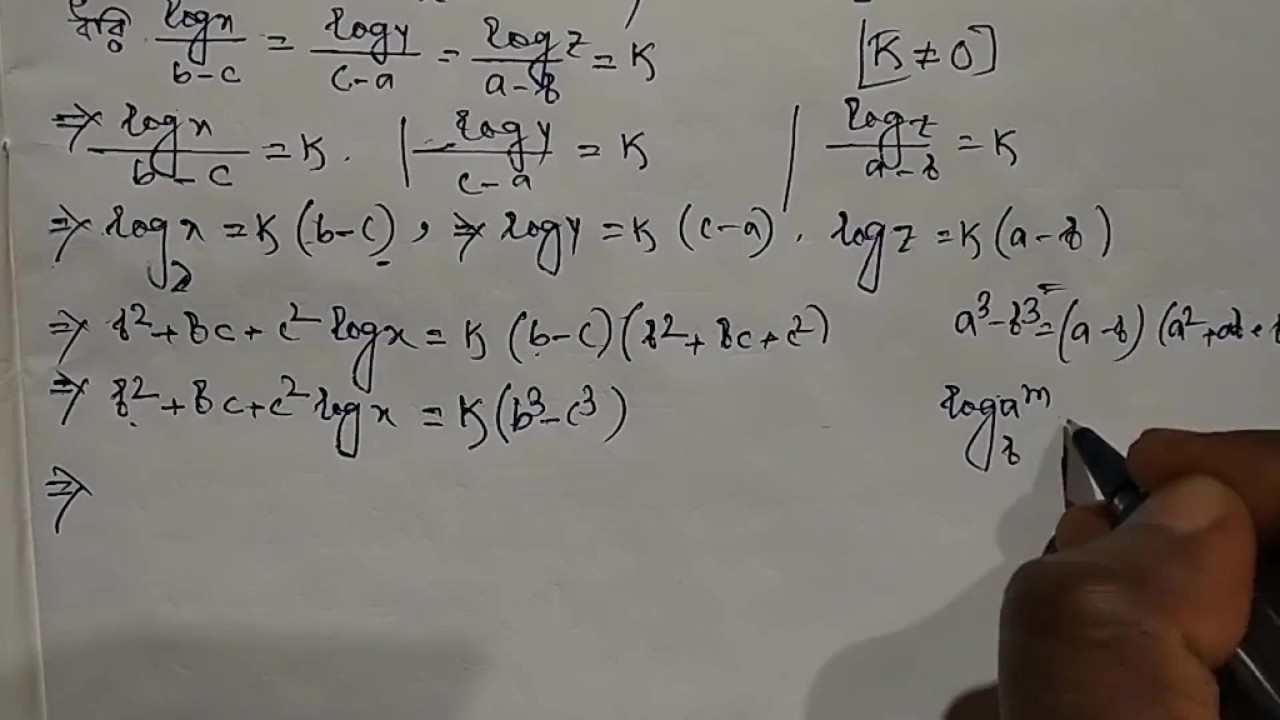 ধরি, logx/b-c = logy/c-a = logz/a-b = K [K ≠ 0]
⇒ logx/b-c = K. | logy/c-a = K | logz/a-b = K
⇒ logx = K(b-c), ⇒ logy = K(c-a). logz = K(a-b)
⇒ b²+bc+c² logx = K(b-c)(b²+bc+c²) a³-b³=(a-b)(a²+ab+
⇒ b²+bc+c² logx = K(b³-c³) log_b a^m
⇒